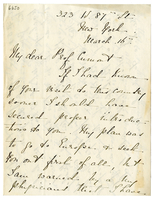 323 W. 87th St.
New York.
March 16th
My dear Prof. Cumont
If I had known
of your visit to this country
sooner I should have
secured proper introduc-
tions to you. My plan was
to go to Europe, & seek
you out first of all. But
I am warned by my
physicians that I have